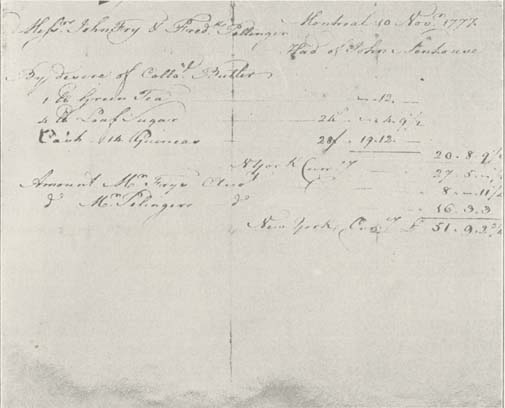 Messrs John Fry & Fredk Pellenger Montreal 10 Novr 1777
Had of John Nenhouve
By desire of Collo Butler
1 lb Green Tea — " 12 "
4 lb Loaf Sugar — 24 — 4 9 1/2
Cash 14 Guineas — 28/ — 19.12 —
20.8.9 1/2
N York Curry — 27.5
Amount Mr Frys — 8 — 11 1/2
do Mr Pelingers do 16.3.3
New York Curry £ 51.9.2 1/2